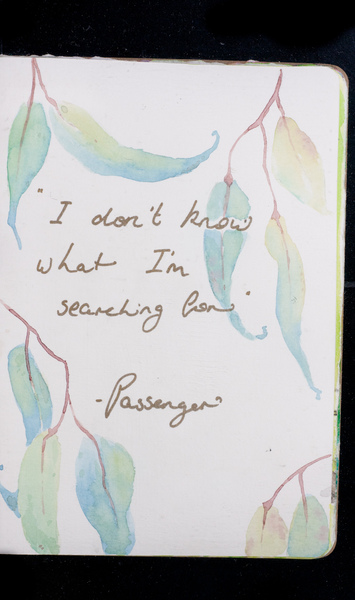 "I don't know
what I'm
searching for"
-Passenger